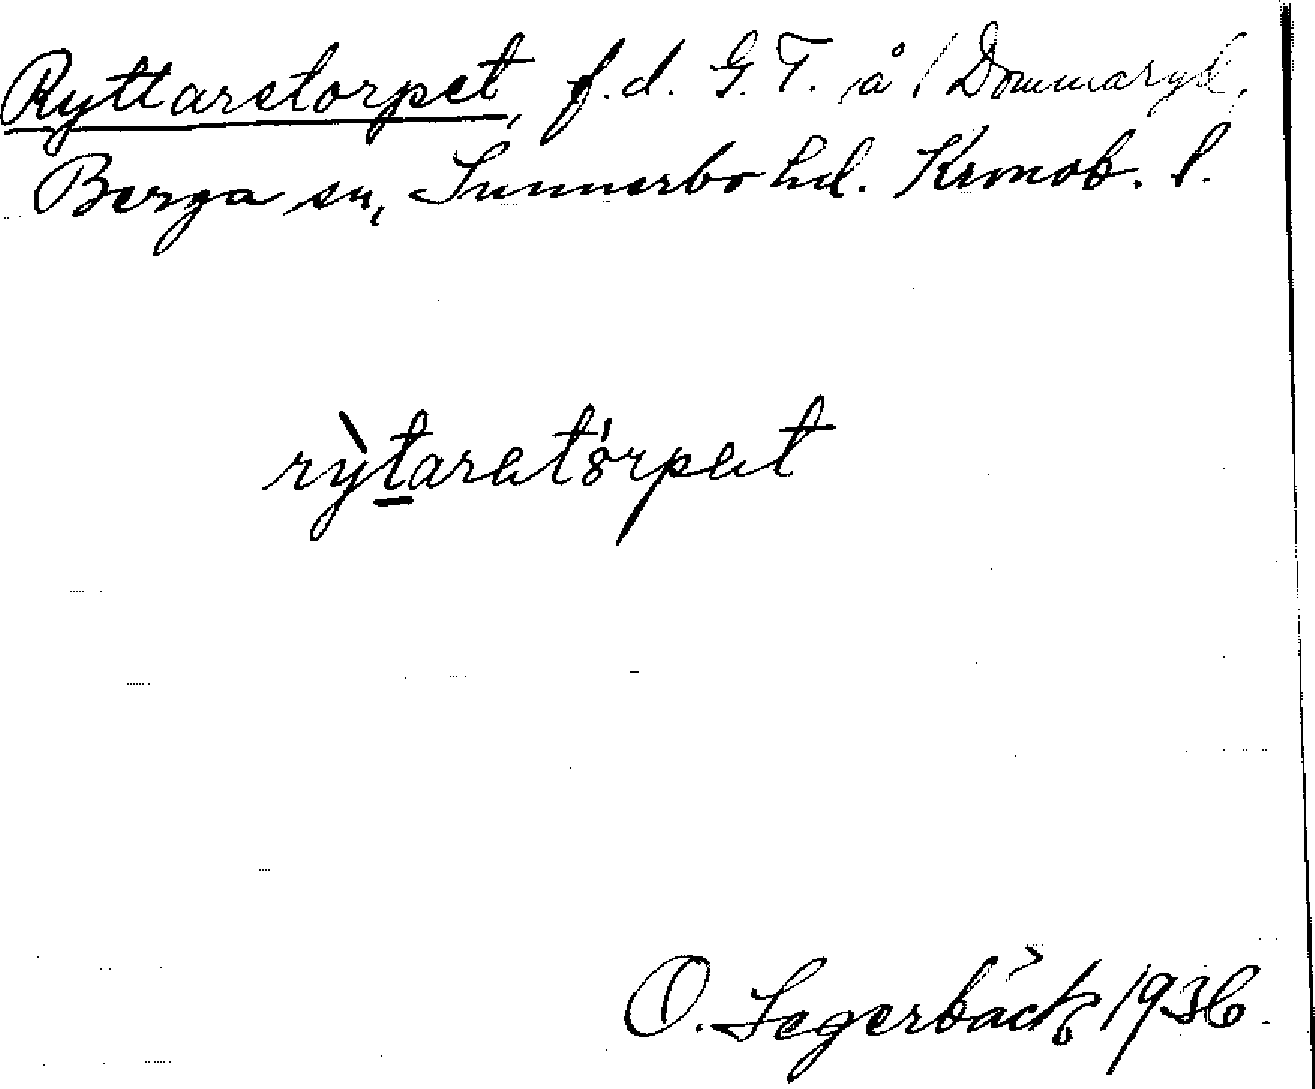 Ryttaretorpet, f.d. G.T. å Dommaryd,
Berga sn, Sunnerbo hd. Kronob. l.
rỳtaretórpet
O. Segerbäck 1936.